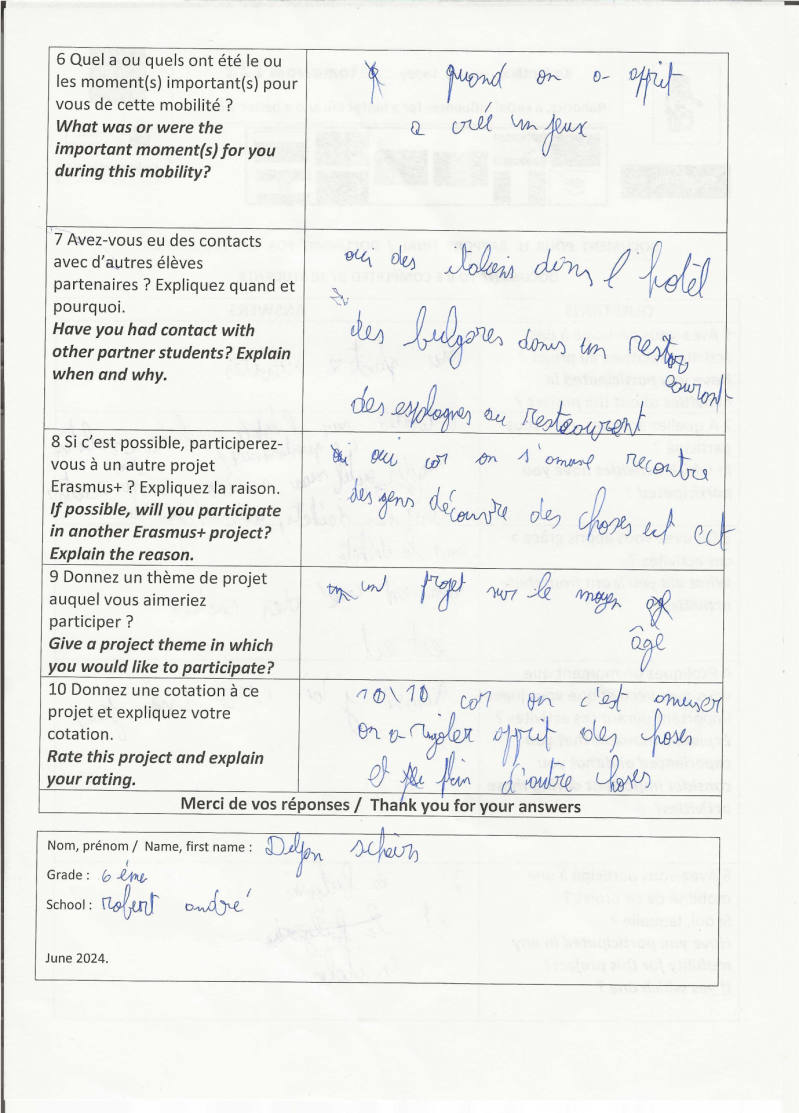 6 Quel a ou quels ont été le ou
les moment(s) important(s) pour
vous de cette mobilité ?
What was or were the
important moment(s) for you
during this mobility?
quand on a apprit
a créé un jeux
7 Avez-vous eu des contacts
avec d'autres élèves
partenaires ? Expliquez quand et
pourquoi.
Have you had contact with
other partner students? Explain
when and why.
oui des italiens dans l'hotêl
des bulgares dans un resto
courant
des espagnes au restaurent
8 Si c'est possible, participerez-
vous à un autre projet
Erasmus+ ? Expliquez la raison.
If possible, will you participate
in another Erasmus+ project?
Explain the reason.
oui car on s'amuse recontre
des gens découvre des choses est ect
9 Donnez un thème de projet
auquel vous aimeriez
participer ?
Give a project theme in which
you would like to participate?
un projet sur le moyen
âge
10 Donnez une cotation à ce
projet et expliquez votre
cotation.
Rate this project and explain
your rating.
10\10 car on c'est amuser
on a rigoler apprit des choses
et plein d'autre choses
Merci de vos réponses / Thank you for your answers
Nom, prénom / Name, first name :
Grade : 6 ème
School : Robert andré
June 2024.